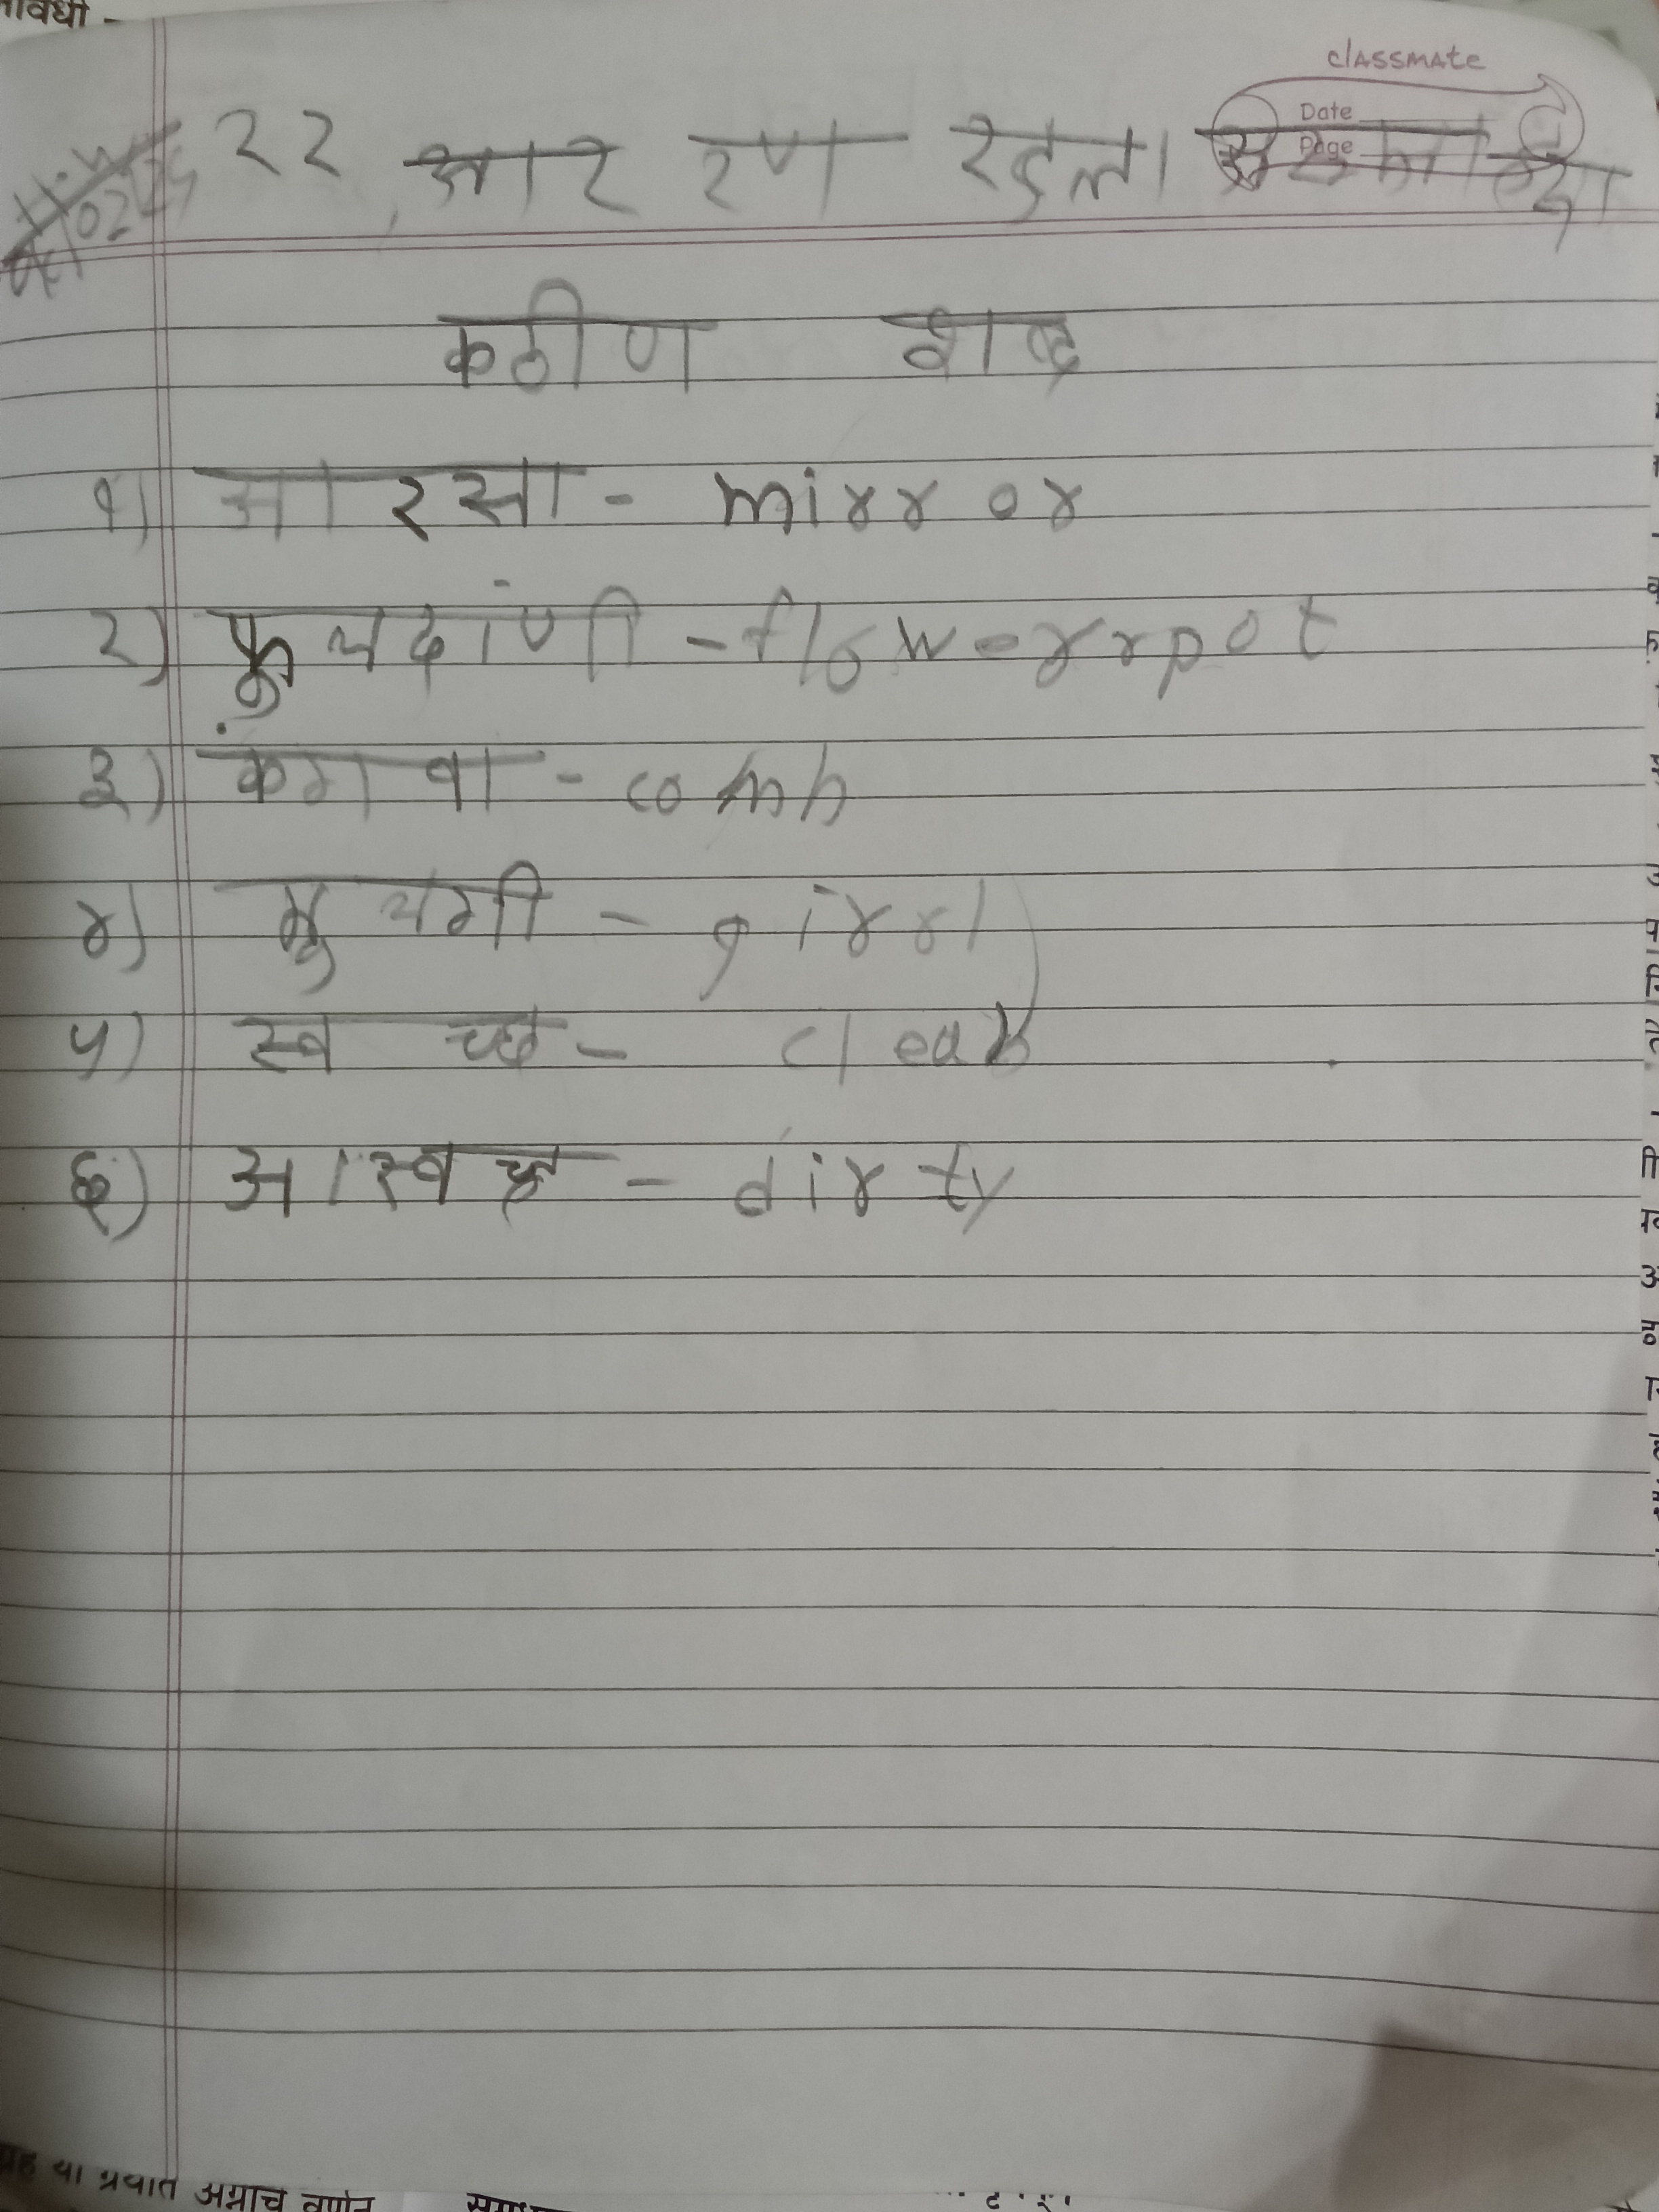 classmate
Date
Page
२२ आर रण रडला
कठीण शब्द
१) आरसा - mirror
२) फुलदांणी - flowerrpot
३) कंगवा - comb
४) मुलगी - girrl
५) स्वच्छ - clean
६) आस्वछ - dirty